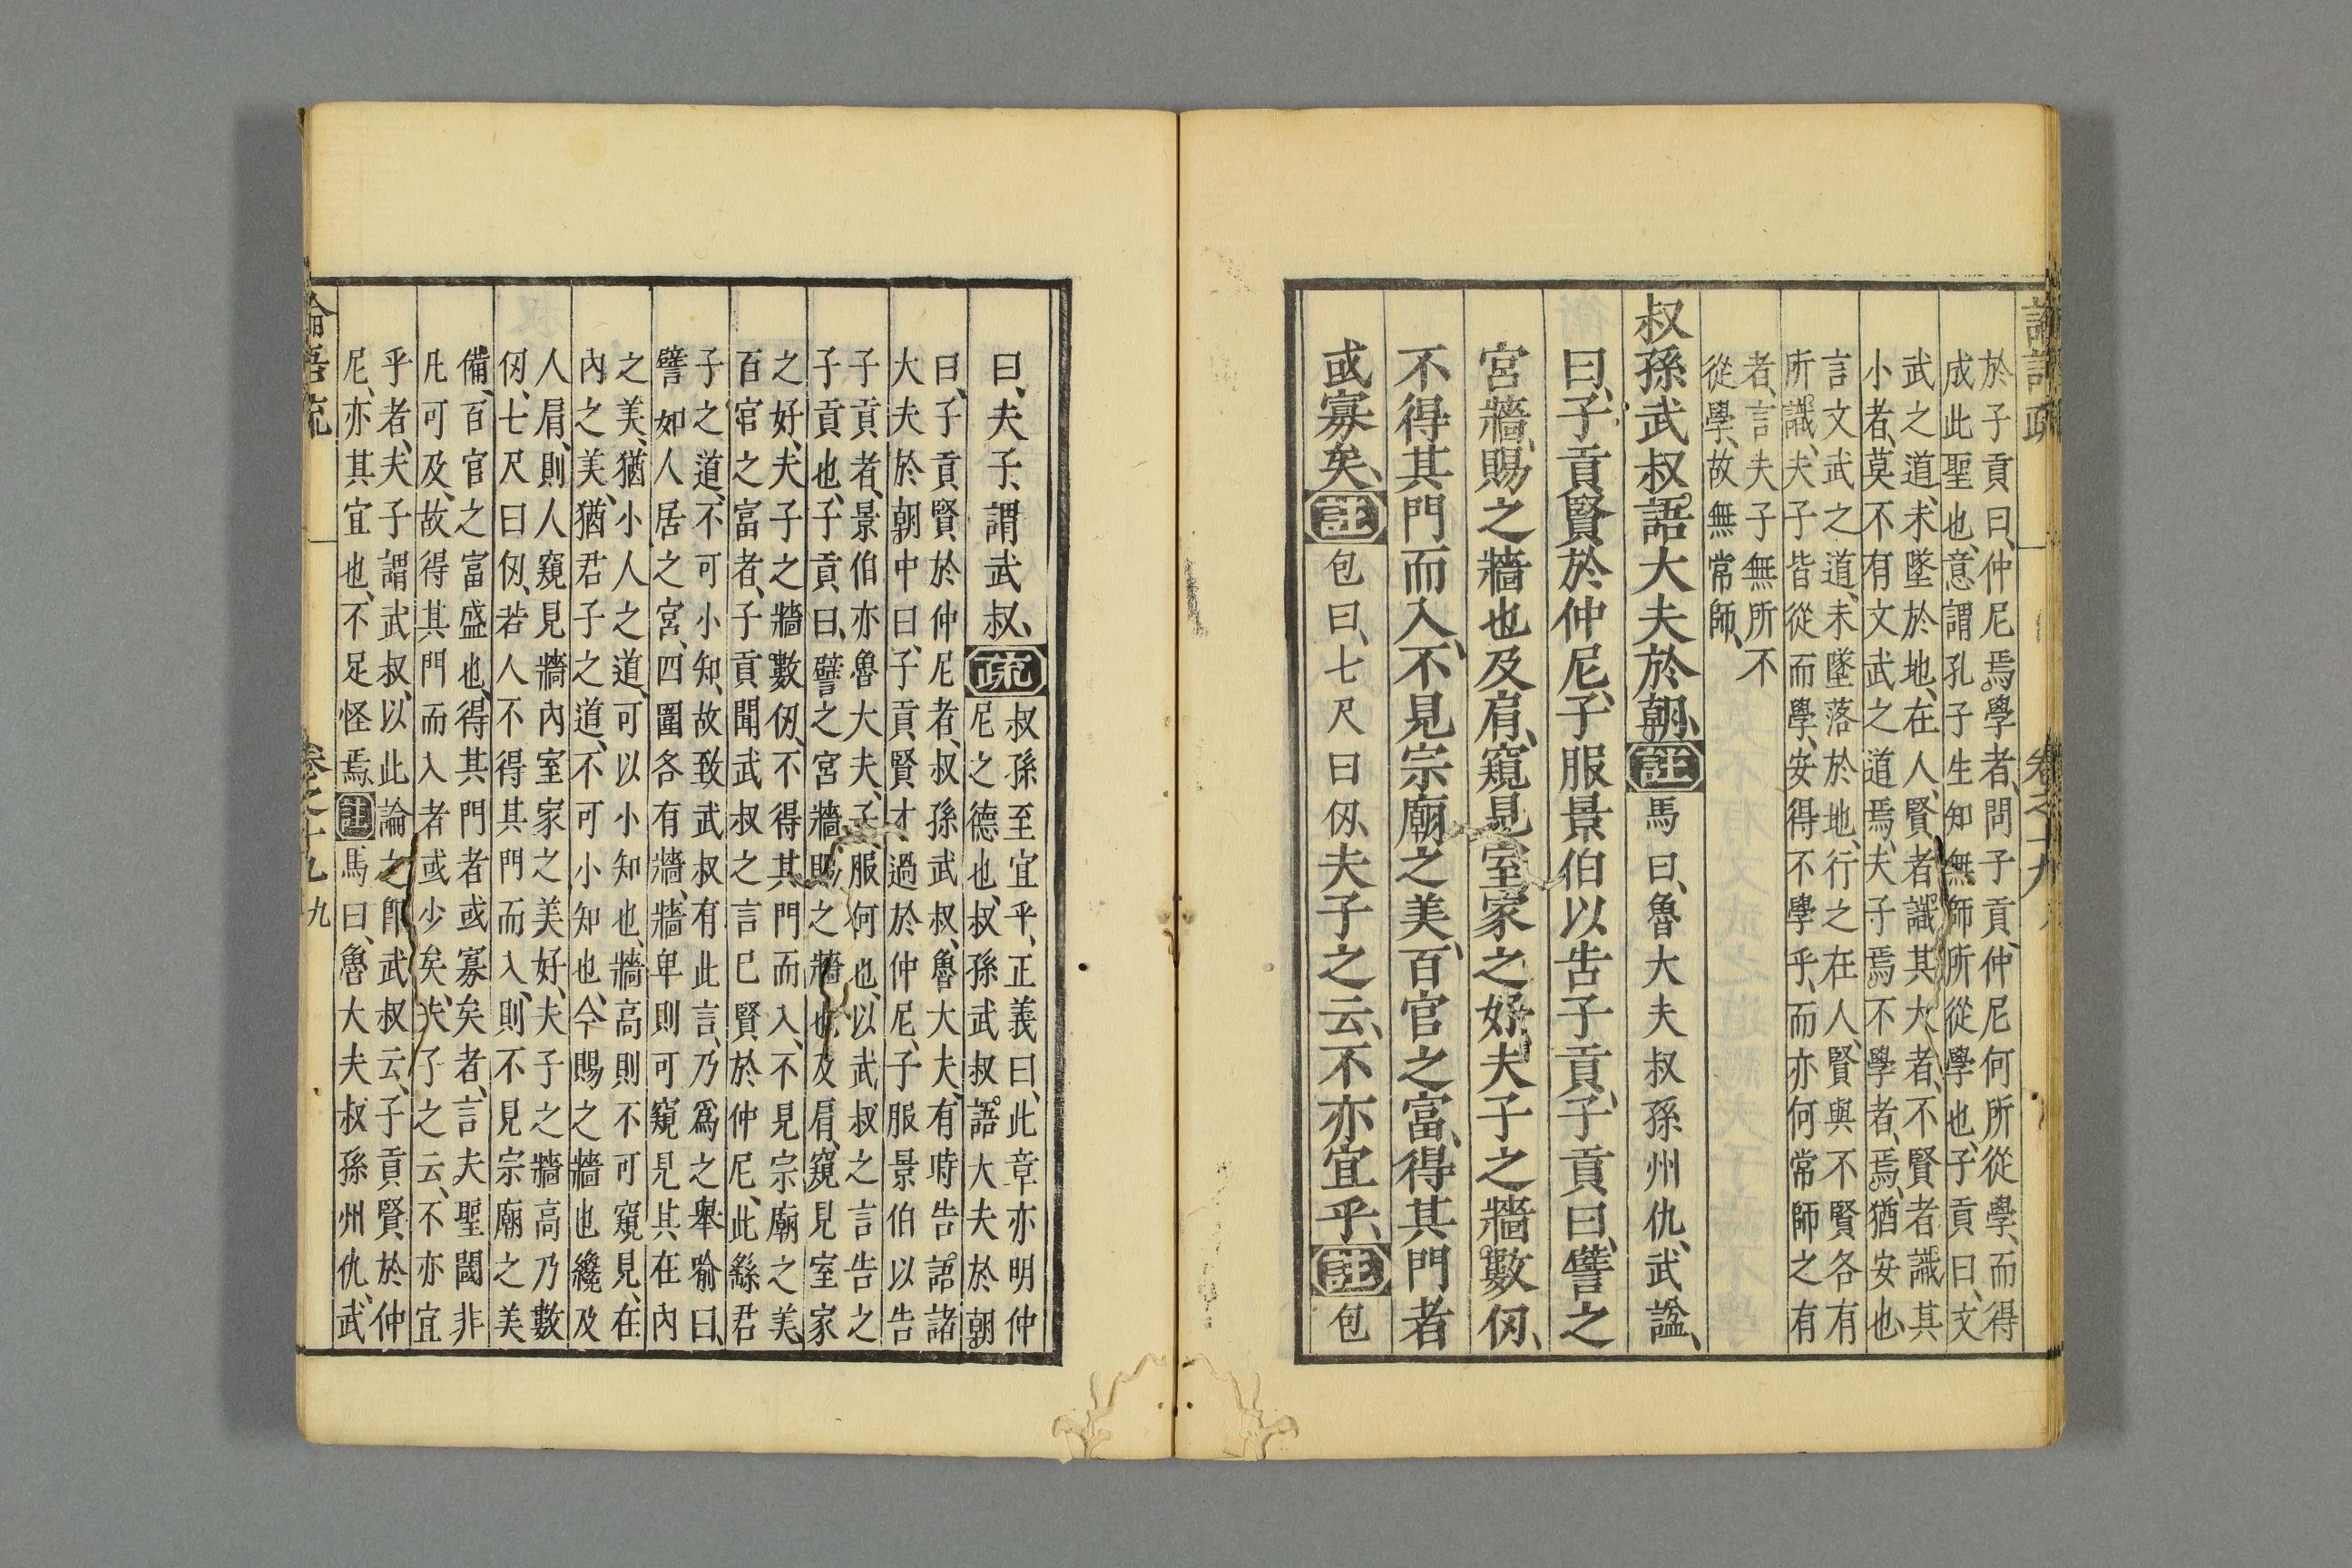 論語疏 卷之十九
於子貢曰、仲尼焉學者、問子貢、仲尼何所從學、而得
成此聖也、意謂孔子生知無師所從學也、子貢曰、文
武之道、未墜於地、在人、賢者識其大者、不賢者識其
小者、莫不有文武之道焉、夫子焉不學者、焉、猶安也、
言文武之道、未墜落於地、行之在人、賢與不賢各有
所識、夫子皆從而學、安得不學乎、而亦何常師之有
者、言夫子無所不
從學、故無常師、
叔孫武叔語大夫於朝、註馬曰、魯大夫叔孫州仇、武諡、
曰、子貢賢於仲尼、子服景伯以告子貢、子貢曰、譬之
宮牆、賜之牆也及肩、窺見室家之好、夫子之牆數仞、
不得其門而入、不見宗廟之美、百官之富、得其門者
或寡矣、註包曰、七尺曰仞、夫子之云、不亦宜乎、註包
曰、夫子、謂武叔、疏叔孫至宜乎、正義曰、此章亦明仲
尼之德也、叔孫武叔語大夫於朝
曰、子貢賢於仲尼者、叔孫武叔、魯大夫、有時告語諸
大夫於朝中曰、子貢賢才、過於仲尼、子服景伯以告
子貢者、景伯亦魯大夫、子服何也、以武叔之言告之
子貢也、子貢曰、譬之宮牆、賜之牆也及肩、窺見室家
之好、夫子之牆數仞、不得其門而入、不見宗廟之美、
百官之富者、子貢聞武叔之言已賢於仲尼、此繇君
子之道、不可小知、故致武叔有此言、乃爲之舉喻曰、
譬如人居之宮、四圍各有牆、牆卑則可窺見其在內
之美、猶小人之道、可以小知也、牆高則不可窺見、在
內之美、猶君子之道、不可小知也、今賜之牆也纔及
人肩、則人窺見牆內室家之美好、夫子之牆高乃數
仞、七尺曰仞、若人不得其門而入、則不見宗廟之美
備、百官之富盛也、得其門者或寡矣者、言夫聖閾非
凡可及、故得其門而入者或少矣、夫子之云、不亦宜
乎者、夫子謂武叔、以此論之、卽武叔云、子貢賢於仲
尼、亦其宜也、不足怪焉、註馬曰、魯大夫叔孫州仇、武
論語疏 卷之十九 九